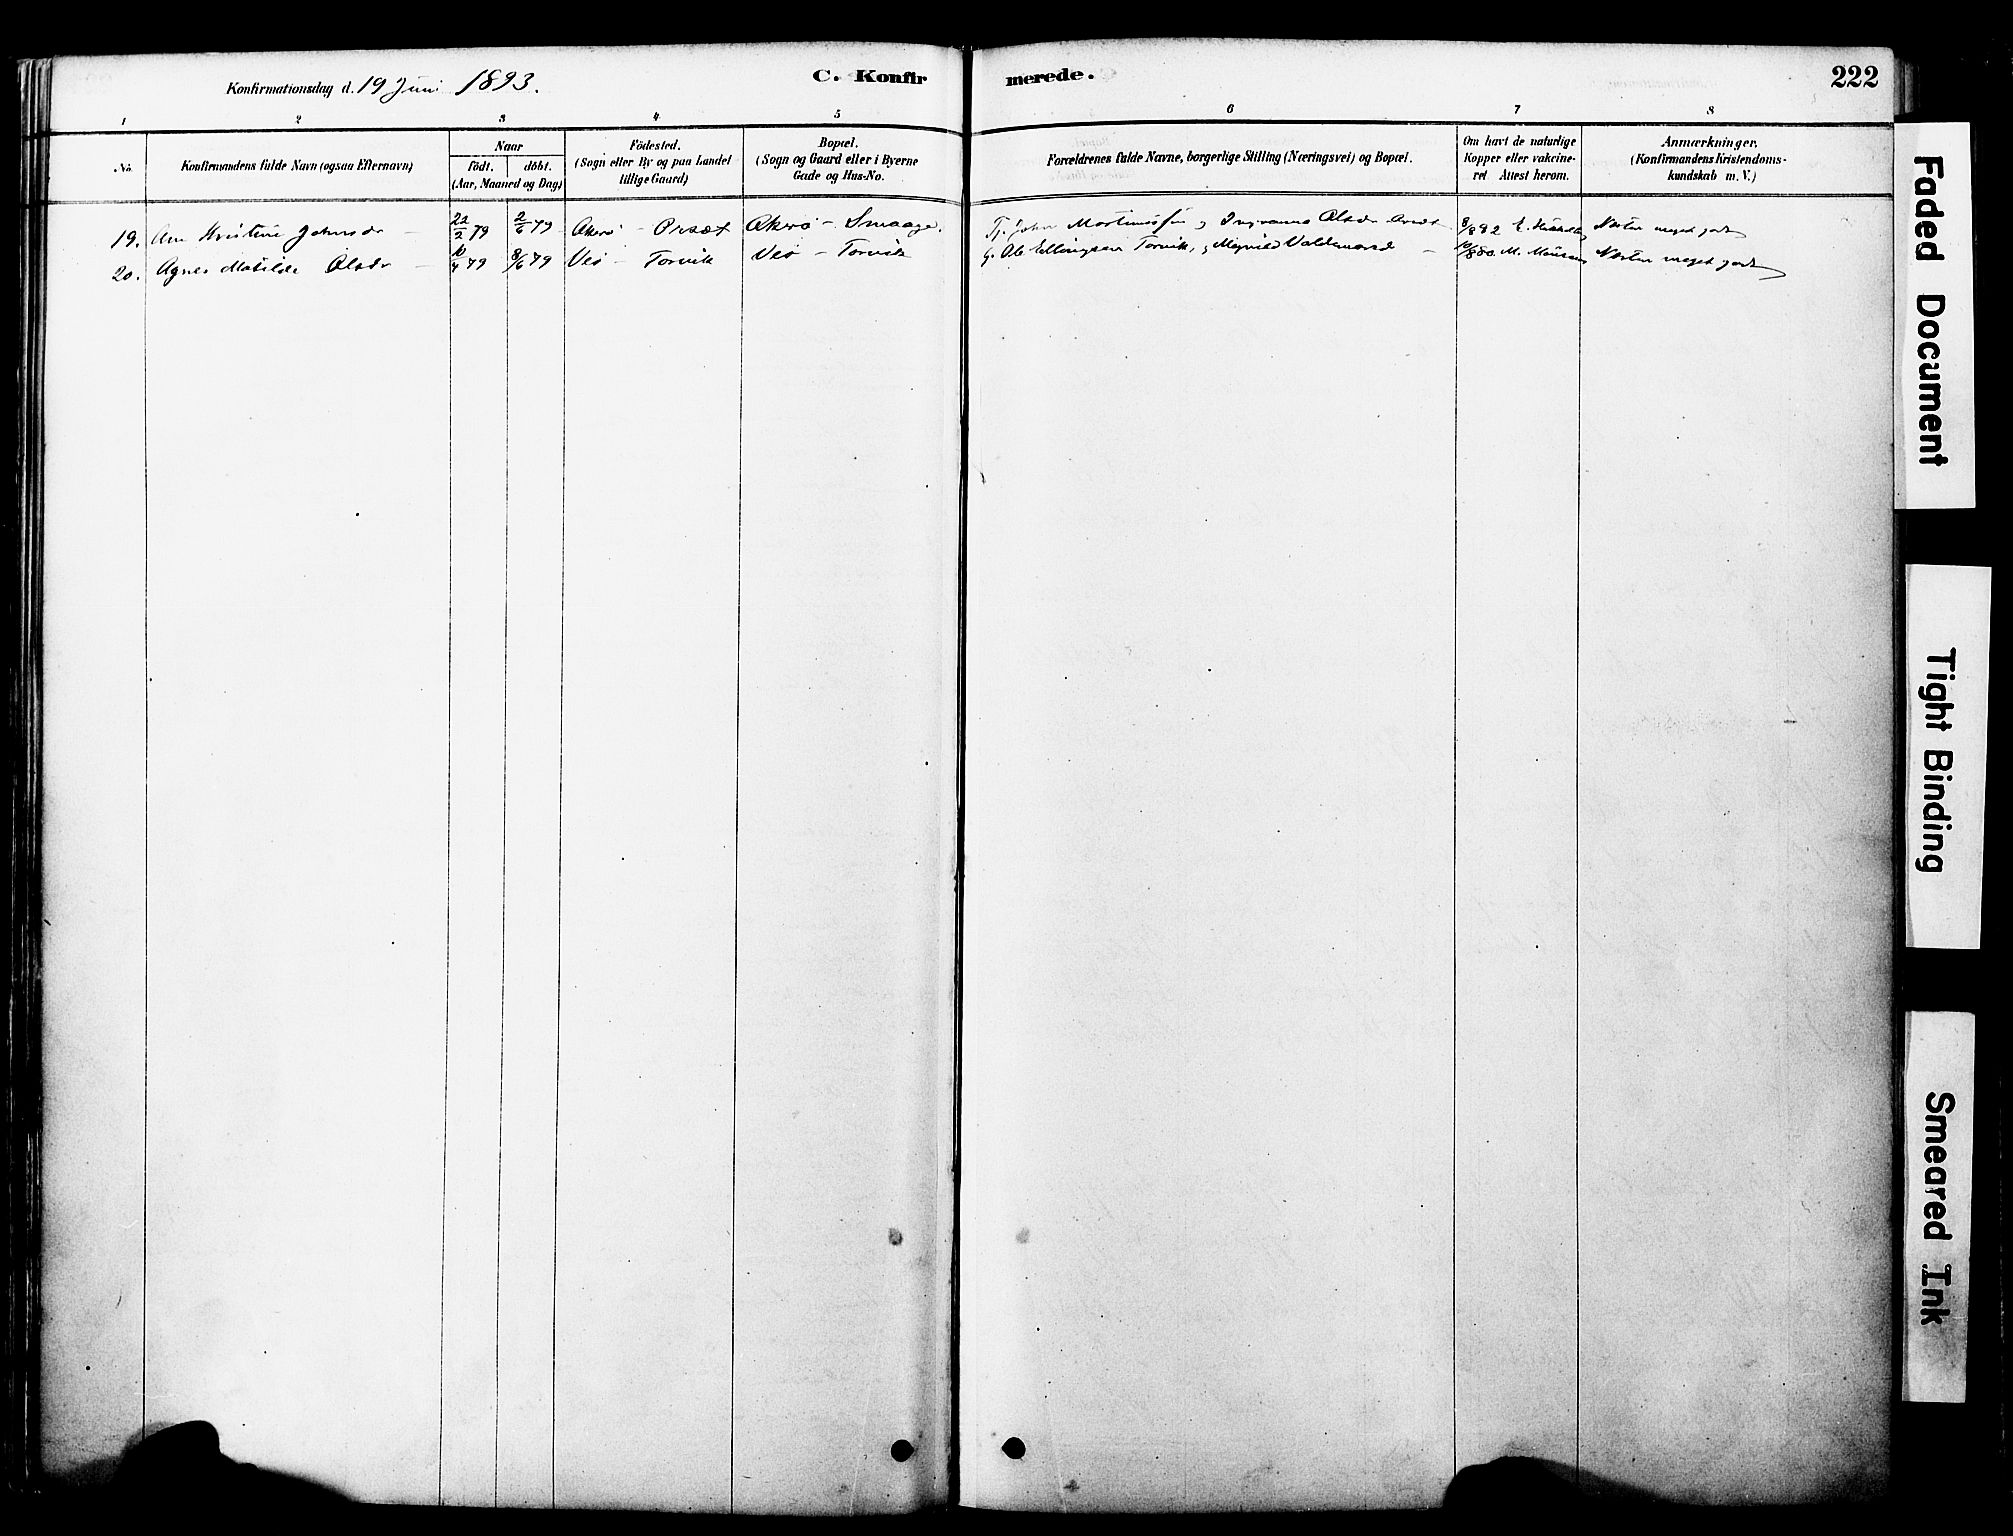 Konfirmationsdag d. 19 Juni 1893.
C. Konfirmerede.
222
1 2 3 4 5 6 7 8
No.
Konfirmandens fulde Navn (ogsaa Efternavn)
Naar
födt. döbt.
(Aar, Maaned og Dag)
Födested.
(Sogn eller By og paa Landet
tillige Gaard)
Bopæl.
(Sogn og Gaard eller i Byerne
Gade og Hus-No.
Forældrenes fulde Navne, borgerlige Stilling (Næringsvei) og Bopæl.
Om havt de naturlige
Kopper eller vakcine-
ret Attest herom.
Anmærkninger.
(Konfirmandens Kristendoms-
kundskab m. V.)
19. Ane Kristine Johnsdr – 22/2 79 2/6 79 Akerö – Orsæt Akerö – Smaage. Tj. John Mortinussen og Olsdr 8/8 82 Nesten meget godt
20. Agnes Matilde Olsdr – 10/4 79 8/6 79 Veö – Torvik Veö – Torvik G. Ole Ellingsen Torvik, og Magnild Valdemarsd – M. Nesten meget godt
Faded Document
Tight Binding
Smeared Ink